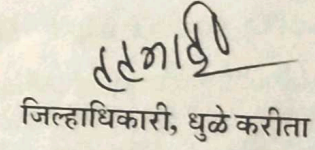 जिल्हाधिकारी, धुळे करीता